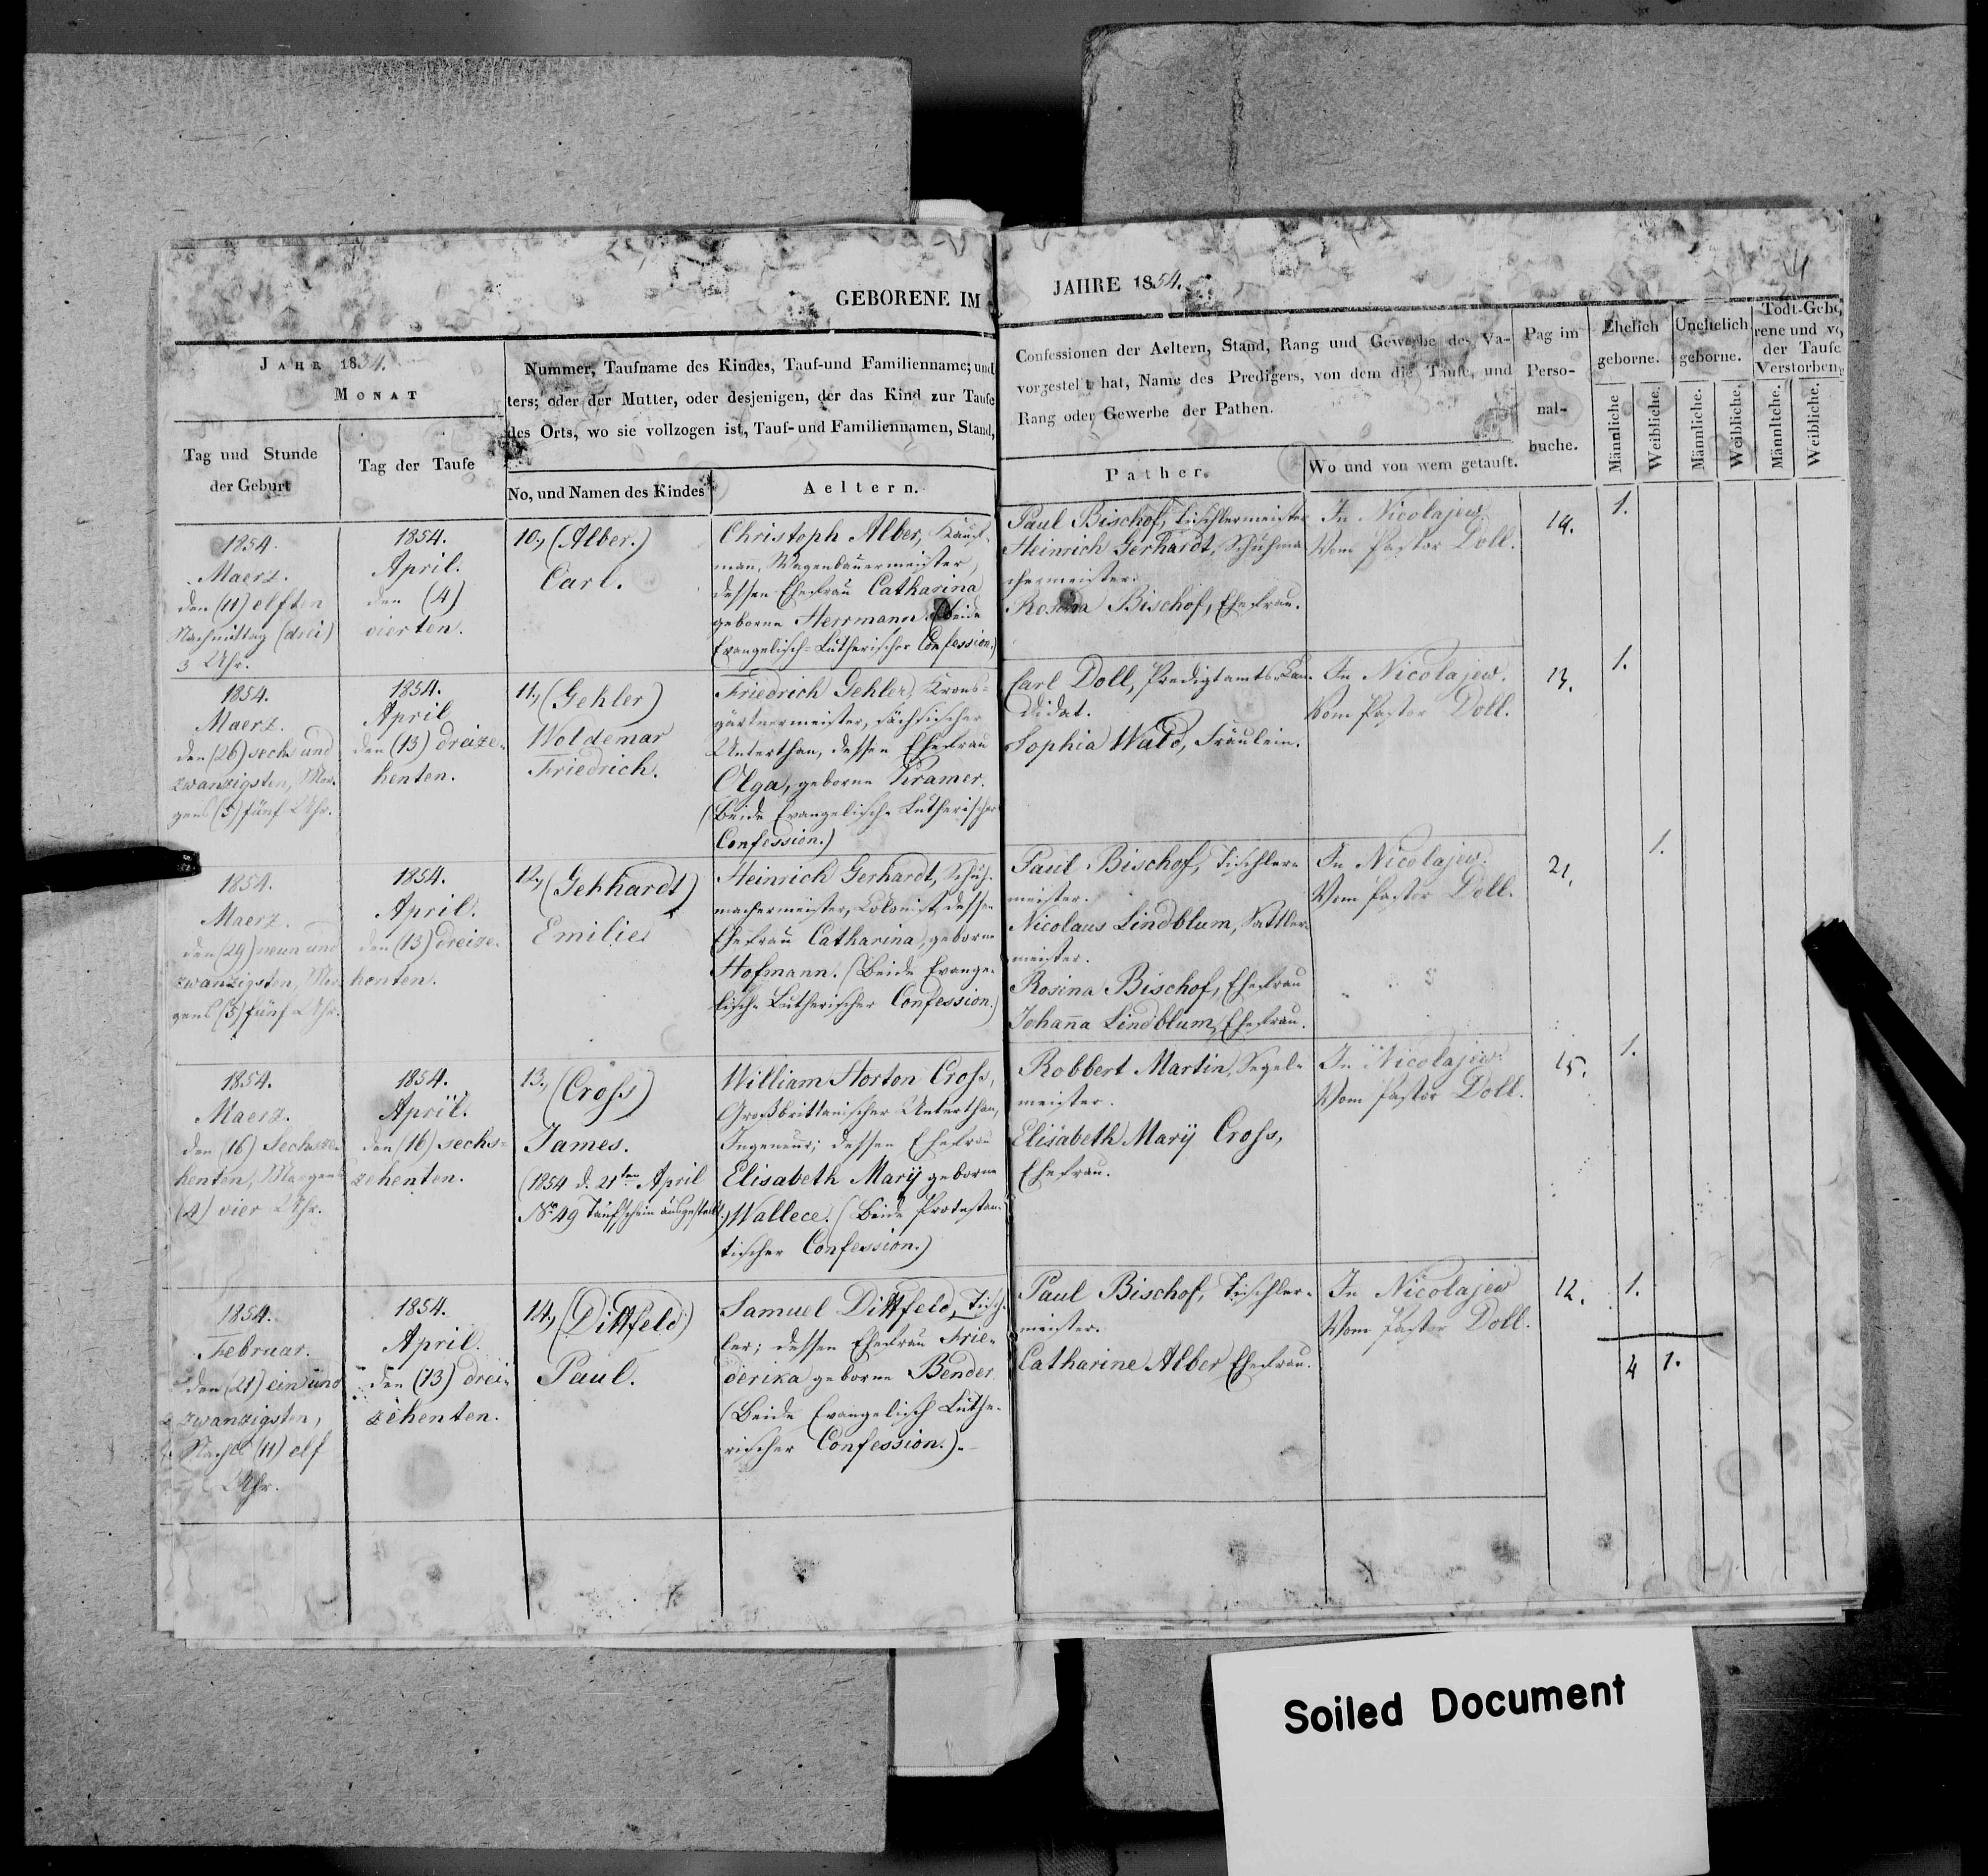 GEBORENE IM
JAHRE 1854.
4
JAHR 1854.
MONAT
Tag und Stunde
der Geburt
Tag der Taufe
Nummer, Taufname des Kindes, Tauf-und Familienname; und
ters; oder der Mutter, oder desjenigen, der das Kind zur Taufe
des Orts, wo sie vollzogen ist, Tauf-und Familiennamen, Stand,
No, und Namen des Kindes
Aeltern.
Confessionen der Aeltern, Stand, Rang und Gewerbe des Va-
vorgestellt hat, Name des Predigers, von dem die Taufe, und
Rang oder Gewerbe der Pathen.
Pather.
Wo und von wem getauft.
Pag im
Perso-
nal-
buche.
Ehelich
geborne.
Unehelich
geborne.
Todt-Gebo
rene und vo
der Taufe
Verstorbene
Männliche
Weibliche.
Männliche.
Weibliche.
Männliche.
Weibliche.
1854.
Maerz.
den (11) elften
Nachmittag (drei)
3 Uhr.
1854.
April.
den (4)
vierten.
10., (Alber.)
Carl.
Christoph Alber,
man, Wagenbauermeister,
dessen Ehefrau Catharina
geborne Herrmann. (Beide
Evangelisch-Lutherischer Confession.)
Paul Bischof, Tischlermeister
Heinrich Gerhardt, Schuhma
chermeister.
Rosina Bischof, Ehefrau.
In Nicolajew
Vom Pastor Doll.
19.
1.
1854.
Maerz.
den (26) sechs und
zwanzigsten, Mor-
gens (5) fünf Uhr.
1854.
April
den (13) dreize-
henten.
11., (Gehler)
Woldemar
Friedrich.
Friedrich Gehler, Krons-
gärtnermeister, sächsischer
Unterthan, dessen Ehefrau
Olga, geborne Kramer.
(Beide Evangelisch-Lutherischer
Confession.)
Carl Doll, Predigtamts-Kan-
didat.
Sophia Wald, Fräulein.
In Nicolajew.
Vom Pastor Doll.
13.
1.
1854.
Maerz.
den (29) neun und
zwanzigsten, Mor-
gens (5) fünf Uhr.
1854.
April.
den (13) dreize-
henten.
12., (Gehhardt)
Emilie
Heinrich Gerhardt, Schuh-
machermeister, Kolonist, dessen
Ehefrau Catharina, geborne
Hofmann. (Beide Evange-
lisch-Lutherischer Confession.)
Paul Bischof, Tischler-
meister.
Nicolaus Lindblum, Sattler-
meister.
Rosina Bischof, Ehefrau
Johanna Lindblum, Ehefrau.
In Nicolajew.
Vom Pastor Doll.
21.
1.
1854.
Maerz.
den (16) Sechsze-
henten, Morgens
(4) vier Uhr.
1854.
April.
den (16) sechs-
zehenten.
13., (Cross)
James.
(1854 d. 21ten April
No 49 Taufschein ausgestellt.)
William Horton Cross,
Großbrittanischer Unterthan,
Ingeneur; dessen Ehefrau
Elisabeth Mary geborne
Wallece. (Beide Protestan-
tischer Confession.)
Robbert Martin, Segel-
meister.
Elisabeth Mary Cross,
Ehefrau.
In Nicolajew.
Vom Pastor Doll.
15.
1.
1854.
Februar.
den (21) ein und
zwanzigsten,
Nachts (11) elf
Uhr.
1854.
April.
den (13) drei-
zehenten.
14., (Dittfeld)
Paul.
Samuel Dittfeld, Tisch-
ler; dessen Ehefrau Frie-
derika geborne Bender.
(Beide Evangelisch Luthe-
rischer Confession.)
Paul Bischof, Tischler-
meister.
Catharine Alber Ehefrau.
In Nicolajew
Vom Pastor Doll.
12.
1.
4 1.
Soiled Document